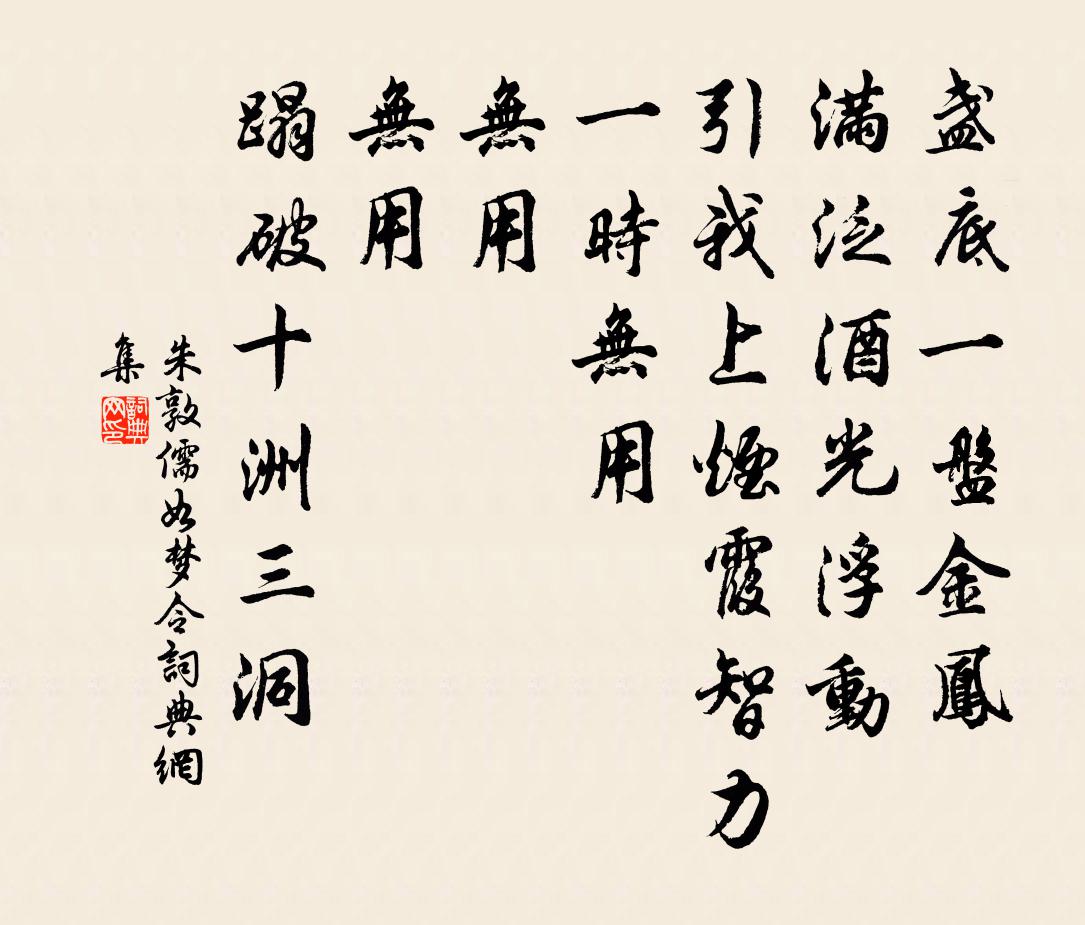 盞底一盤金鳳
滿泛酒光浮動
引我上煙霞智力
一時無用
無用
無用
蹋破十洲三洞
朱敦儒如梦令詞典網
集
詞典
网印